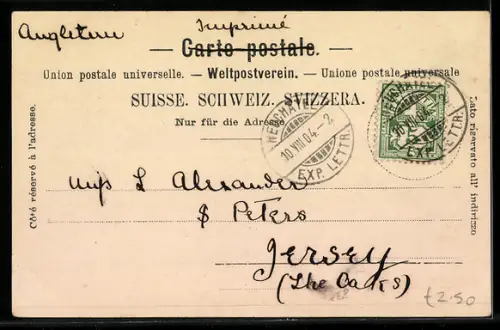 Angleterre
Imprimé
Carte postale.
Union postale universelle. — Weltpostverein. — Unione postale universale
SUISSE. SCHWEIZ. SVIZZERA.
Nur für die Adresse
Côté réservé à l'adresse.
Lato riservato all' indirizzo
NEUCHÂTEL
10 VIII 04 - 2
EXP. LETTR.
NEUCHÂTEL
10 VIII 04
EXP. LETTR.
Miss L Alexander
S Peters
Jersey
(The Oaks)
£2.50